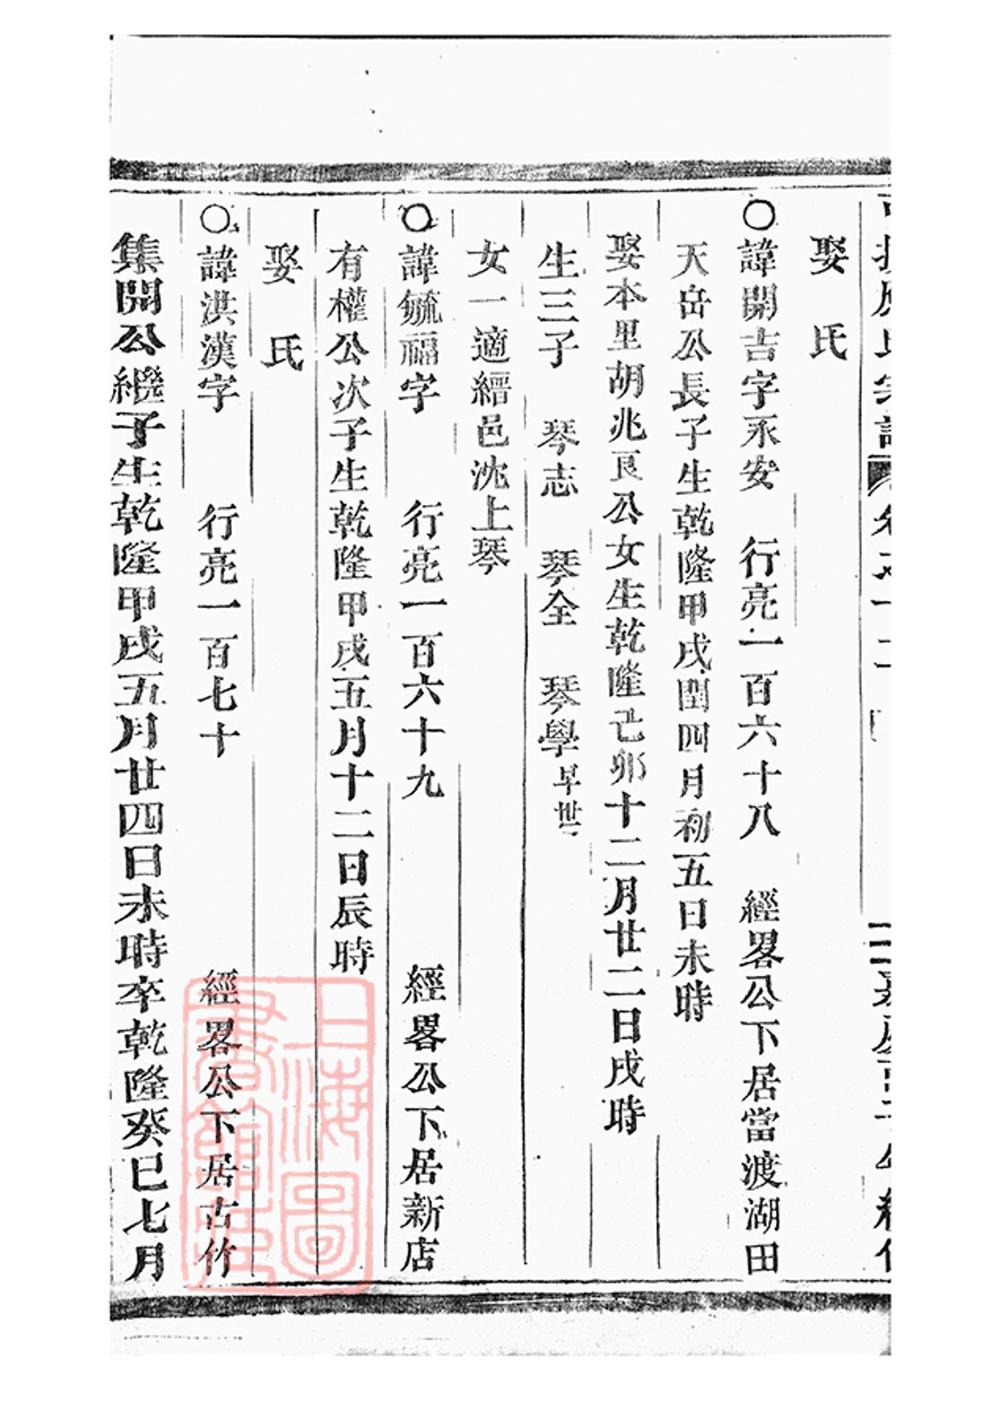 娶　氏
○諱開吉字永安　行亮一百六十八　經畧公下居當渡湖田
天岳公長子生乾隆甲戌閏四月初五日未時
娶本里胡兆良公女生乾隆己卯十二月廿二日戌時
生三子　琴志　琴全　琴學早世
女一適縉邑沈上琴
○諱毓福字　行亮一百六十九　經畧公下居新店
有權公次子生乾隆甲戌五月十二日辰時
娶　氏
○諱洪漢字　行亮一百七十　經畧公下居古竹
集開公繼子生乾隆甲戌五月廿四日未時卒乾隆癸巳七月
上海圖書館藏